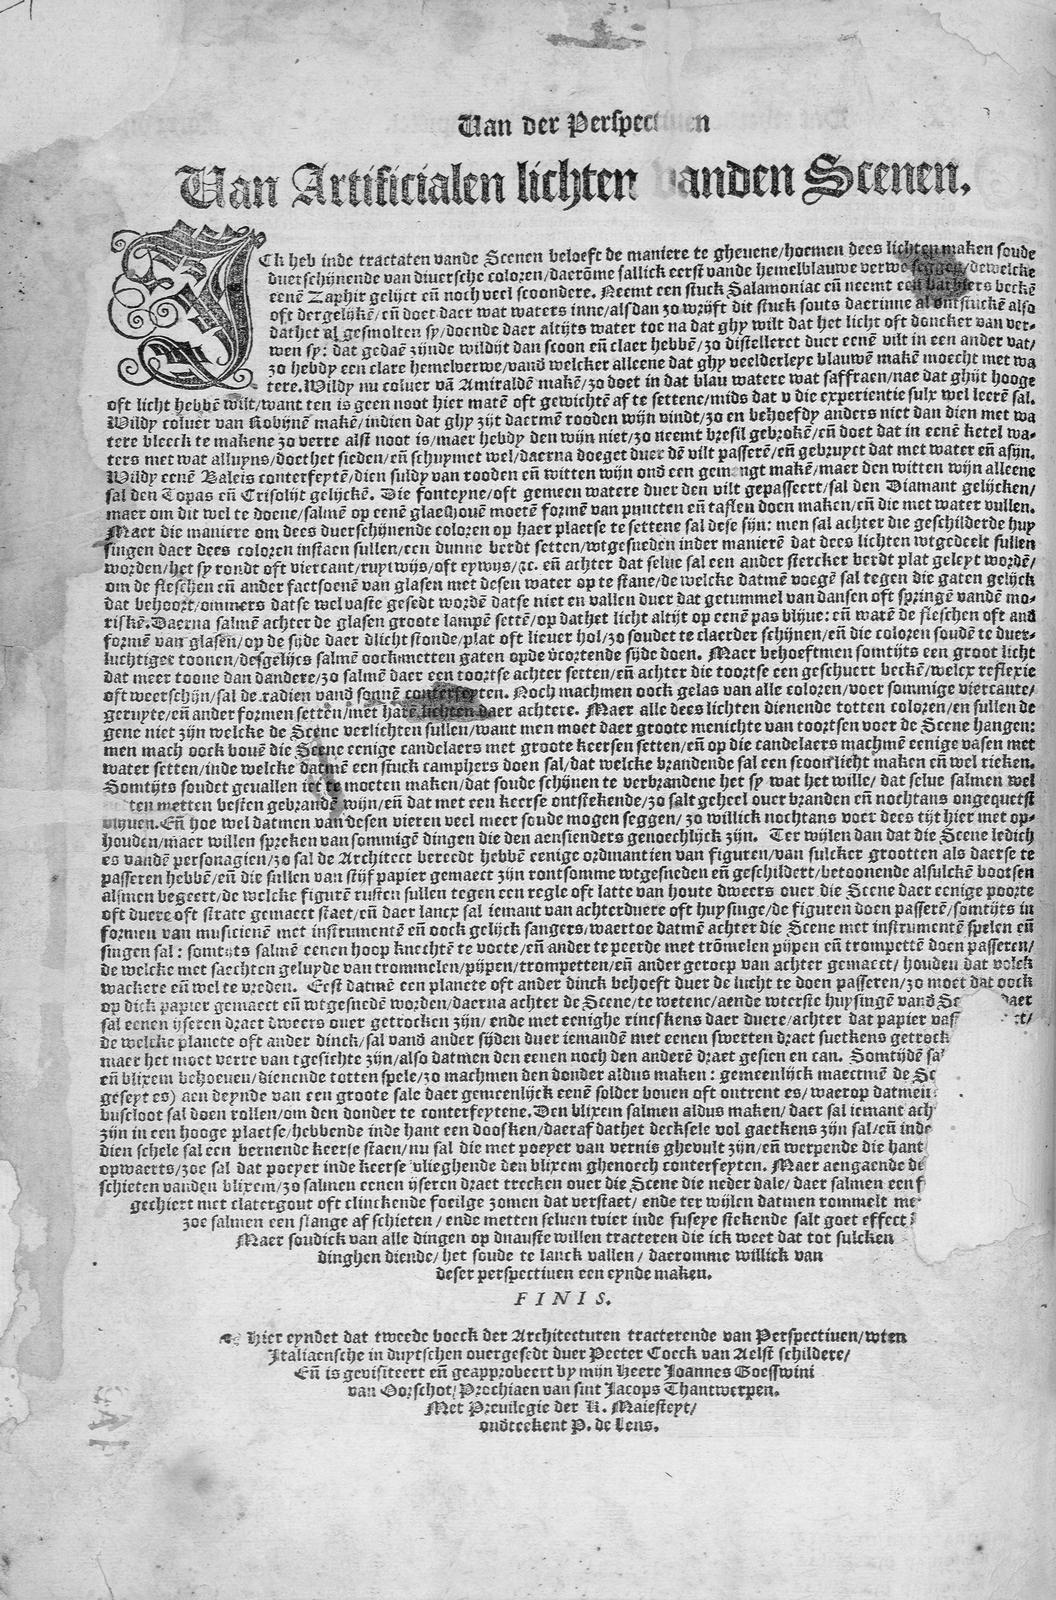 Van der Perspectiuen
Van Artificialen lichten vanden Scenen.
ICk heb inde tractaten vande Scenen beloeft de maniere te gheuene/hoemen dees lichten maken soude
duerschijnende van diuersche coloren/daerõme sallick eerst vande hemelblauwe verwe seggen/dewelcke
eenẽ Zaphir gelijct eñ noch veel scoondere. Neemt een stuck Salamoniac eñ neemt een barbiers beckẽ
oft dergelijkẽ/eñ doet daer wat waters inne/alsdan zo wrijft dit stuck souts daerinne al om stuckẽ also
dathet al gesmolten sy/doende daer altijts water toe na dat ghy wilt dat het licht oft doncker van ver-
wen sy: dat gedaẽ zijnde wildijt dan scoon eñ claer hebbẽ/zo distelleret duer eenẽ vilt in een ander vat/
zo hebdy een clare hemelverwe/vand welcker alleene dat ghy veelderleye blauwẽ makẽ moecht met wa
tere. Wildy nu coluer vã Amiraldẽ makẽ/zo doet in dat blau watere wat saffraen/nae dat ghijt hooge
oft licht hebbẽ wilt/want ten is geen noot hier matẽ oft gewichtẽ af te settene/mids dat v die experientie sulx wel leerẽ sal.
Wildy coluer van Robijnẽ makẽ/indien dat ghy zijt daermẽ rooden wijn vindt/zo en behoefdy anders niet dan dien met wa
tere bleeck te makene zo verre alst noot is/maer hebdy den wijn niet/zo neemt bresil gebrokẽ/eñ doet dat in eenẽ ketel wa-
ters met wat alluyns/doethet sieden/eñ schuymet wel/daerna doeget duer dẽ vilt passerẽ/eñ gebruyct dat met water eñ asijn.
Wildy eenẽ Baleis conterfeytẽ/dien suldy van rooden eñ witten wijn ond een gemengt makẽ/maer den witten wijn alleene
sal den Topas eñ Crisolijt gelijckẽ. Die fonteyne/oft gemeen watere duer den vilt gepasseert/sal den Diamant gelijcken/
maer om dit wel te doene/salmẽ op eenẽ glaeshouẽ moetẽ formẽ van puncten eñ taflen doen maken/eñ die met water vullen.
Maer die maniere om dees duerschijnende coloren op haer plaetse te settene sal dese sijn: men sal achter die geschilderde huy
singen daer dees coloren instaen sullen/een dunne berdt setten/wtgesneden inder manierẽ dat dees lichten wtgedeelt sullen
worden/het sy rondt oft viercant/ruytwijs/oft eywijs/⁊c. eñ achter dat selue sal een ander stercker berdt plat geleyt wordẽ/
om de fleschen eñ ander factsoenẽ van glasen met desen water op te stane/de welcke datmẽ voegẽ sal tegen die gaten gelijck
dat behoort/ommers datse wel vaste gesedt wordẽ datse niet en vallen duer dat getummel van dansen oft springẽ vandẽ mo-
riskẽ. Daerna salmẽ achter de glasen groote lampẽ settẽ/op dathet licht altijt op eenẽ pas blijue: eñ warẽ de fleschen oft and
formẽ van glasẽ/op de sijde daer dlicht stonde/plat oft lieuer hol/zo soudet te claerder schijnen/eñ die coloren soudẽ te duer-
luchtiger toonen/desgelijcs salmẽ oock metten gaten opde vcortende sijde doen. Maer behoeftmen somtijts een groot licht
dat meer toone dan dandere/zo salmẽ daer een toortse achter setten/eñ achter die toortse een geschuert beckẽ/welcx reflexie
oft weerschijn/sal de radien vand sonnẽ conterfeyten. Noch machmen oock gelas van alle coloren/voer sommige viercante/
geruyte/eñ ander formen settẽ/met harẽ lichten daer achtere. Maer alle dees lichten dienende totten coloren/en sullen de
gene niet zijn welcke de Scene verlichten sullen/want men moet daer groote menichte van toortsen voer de Scene hangen:
men mach oock bouẽ die Scene eenige candelaers met groote keersen setten/eñ op die candelaers machmẽ eenige vasen met
water setten/inde welcke datmẽ een stuck camphers doen sal/dat welcke brandende sal een scoon licht maken eñ wel rieken.
Somtijts soudet geuallen iet te moeten maken/dat soude schijnen te verbrandene het sy wat het wille/dat selue salmen wel
ten metten besten gebrandẽ wijn/eñ dat met een keerse ontstekende/zo salt geheel ouer branden eñ nochtans ongequetst
blijuen. Eñ hoe wel datmen van desen vieren veel meer soude mogen seggen/zo willick nochtans voer dees tijt hier met op-
houden/maer willen spreken van sommigẽ dingen die den aensienders genoechlijck zijn. Ter wijlen dan dat die Scene ledich
es vandẽ personagien/zo sal de Architect bereedt hebbẽ eenige ordinantien van figuren/van sulcker grootten als daerse te
passeren hebbẽ/eñ die sullen van stijf papier gemaect zijn rontsomme wtgesneden eñ geschildert/betoonende alsulckẽ bootsen
alsmen begeert/de welcke figurẽ rusten sullen tegen een regle oft latte van houte dweers ouer die Scene daer eenige poorte
oft duere oft strate gemaect staet/eñ daer lancx sal iemant van achterduere oft huysinge/de figuren doen passerẽ/somtijts in
formen van musicienẽ met instrumentẽ eñ oock gelijck sangers/waertoe datmẽ achter die Scene met instrumentẽ spelen eñ
singen sal: somtijts salmẽ eenen hoop knechtẽ te voete/eñ ander te peerde met trõmelen pijpen eñ trompettẽ doen passeren/
de welcke met saechten geluyde van trommelen/pijpen/trompetten/eñ ander geroep van achter gemaect/houden dat volck
wackere eñ wel te vreden. Eest datmẽ een planete oft ander dinck behoeft duer de lucht te doen passeren/zo moet dat oock
op dick papier gemaect eñ wtgesnedẽ worden/daerna achter de Scene/te wetene/aende weerste huysingẽ vand Sc daer
sal eenen yseren draet dweers ouer getrocken zijn/ende met eenighe rincskens daer duere/achter dat papier vas
de welcke planete oft ander dinck/sal vand ander sijden duer iemandẽ met eenen swerten draet suetkens getrock
maer het moet verre van tgesichte zijn/also datmen den eenen noch den anderẽ draet gesien en can. Somtijdẽ sa
eñ blixem behoeuen/dienende totten spele/zo machmen den donder aldus maken: gemeenlijck maectmẽ de Sc
geseyt es) aen deynde van een groote sale daer gemeenlijck eenẽ solder bouen oft ontrent es/waerop datmen
buscloot sal doen rollen/om den donder te conterfeytene. Den blixem salmen aldus maken/daer sal iemant ach
zijn in een hooge plaetse/hebbende inde hant een doosken/daeraf dathet decksele vol gaetkens zijn sal/eñ inde
dien schele sal een bernende keerse staen/nu sal die met poeyer van vernis ghevult zijn/eñ werpende die hant
opwaerts/zoe sal dat poeyer inde keerse vlieghende den blixem ghenoech conterfeyten. Maer aengaende de
schieten vanden blixem/zo salmen eenen ijseren draet trecken ouer die Scene die neder dale/daer salmen een
gechiert met clatergout oft clinckende foeilge zomen dat verstaet/ende ter wijlen datmen rommelt me
zoe salmen een slange af schieten/ende metten seluen tvier inde fuseye stekende salt goet effect
Maer soudick van alle dingen op dnauste willen tracteren die ick weet dat tot sulcken
dinghen diende/het soude te lanck vallen/daeromme willick van
deser perspectiuen een eynde maken.
FINIS.
Hier eyndet dat tweede boeck der Architecturen tracterende van Perspectiuen/wten
Italiaensche in duytschen ouergesedt duer Peeter Coeck van Aelst schildere/
Eñ is gevisiteert eñ geapprobeert by mijn Heere Joannes Goesswini
van Oorschot/Prochiaen van sint Jacops Thantwerpen.
Met Preuilegie der K. Maiesteyt/
ondteekent P. de Lens.